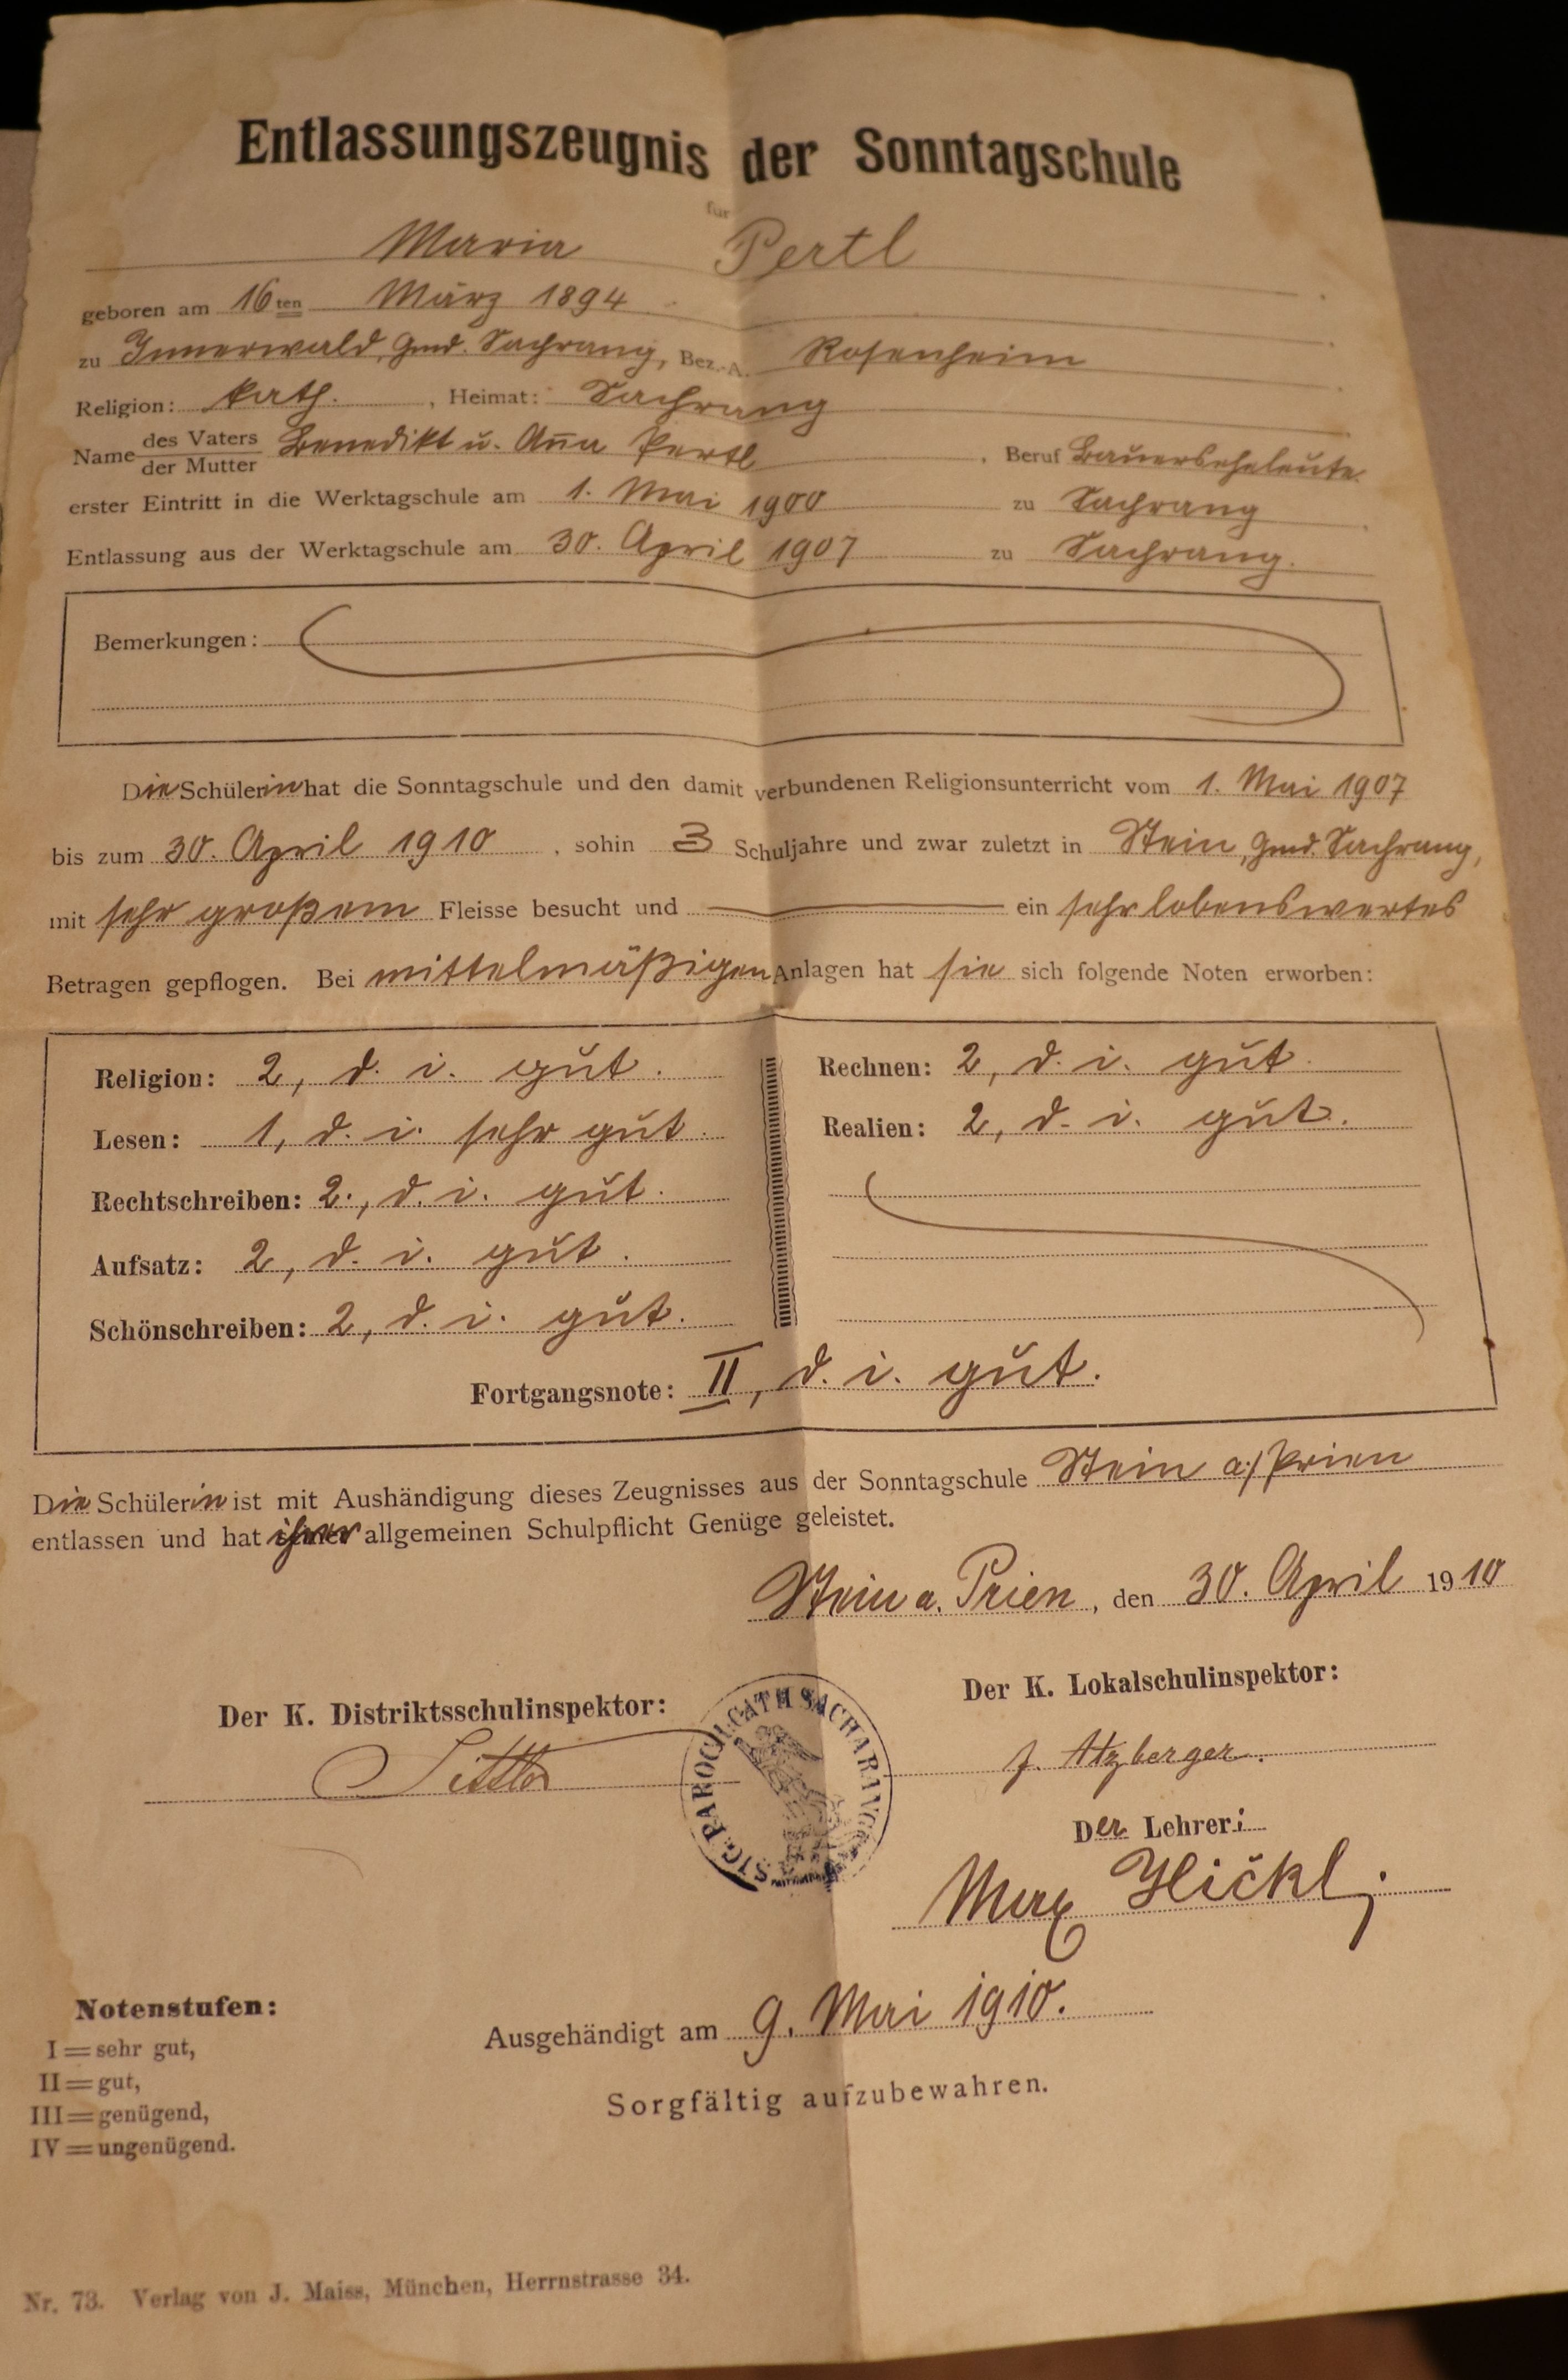 Entlassungszeugnis der Sonntagschule
für
Maria Pertl
geboren am 16ten März 1894
zu Innerwald, Gmd. Sachrang, Bez.-A. Rosenheim
Religion: kath. , Heimat: Sachrang
Name des Vaters / der Mutter Benedikt u. Anna Pertl . Beruf Bauerseheleute.
erster Eintritt in die Werktagschule am 1. Mai 1900 zu Sachrang
Entlassung aus der Werktagschule am 30. April 1907 zu Sachrang.
Bemerkungen:
Die Schülerin hat die Sonntagschule und den damit verbundenen Religionsunterricht vom 1. Mai 1907
bis zum 30. April 1910 , sohin 3 Schuljahre und zwar zuletzt in Stein, Gmd. Sachrang,
mit sehr großem Fleisse besucht und — ein sehr lobenswertes
Betragen gepflogen. Bei mittelmäßigen Anlagen hat sie sich folgende Noten erworben:
Religion: 2, d. i. gut.
Lesen: 1, d. i. sehr gut.
Rechtschreiben: 2., d. i. gut.
Aufsatz: 2, d. i. gut.
Schönschreiben: 2, d. i. gut.
Rechnen: 2, d. i. gut.
Realien: 2, d. i. gut.
Fortgangsnote: II, d. i. gut.
Die Schülerin ist mit Aushändigung dieses Zeugnisses aus der Sonntagschule Stein a/Prien
entlassen und hat ihrer allgemeinen Schulpflicht Genüge geleistet.
Stein a. Prien, den 30. April 1910
Der K. Distriktsschulinspektor:
Der K. Lokalschulinspektor:
J. Atzberger.
SIG. PAROCH. CATH SACHARANG
Der Lehrer:
Max
Ausgehändigt am 9. Mai 1910.
Sorgfältig aufzubewahren.
Notenstufen:
I = sehr gut,
II = gut,
III = genügend,
IV = ungenügend.
Nr. 73. Verlag von J. Maiss, München, Herrnstrasse 34.